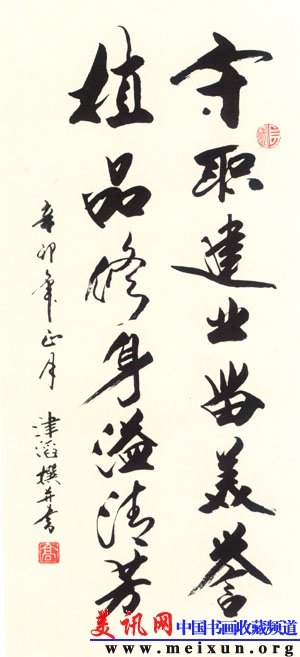 守职建业留美誉
植品修身溢清芳
辛卯年正月
津滔撰并书
美讯网 中国书画收藏频道
www.meixun.org